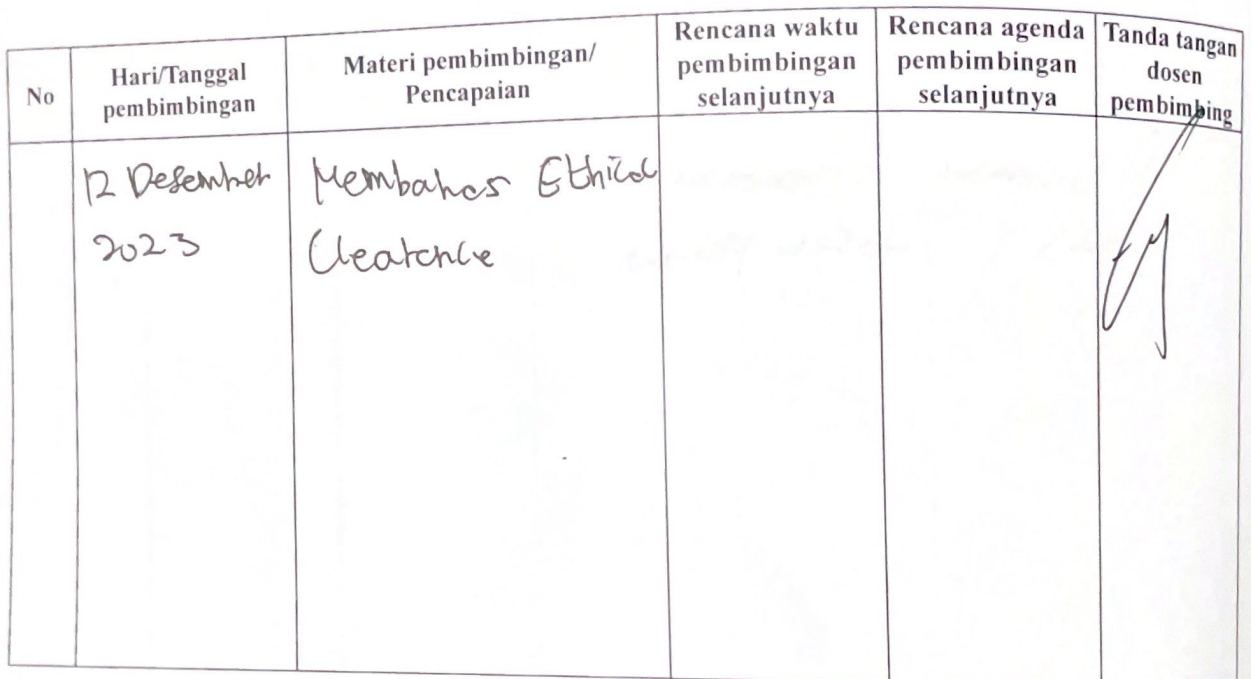 No
Hari/Tanggal
pembimbingan
Materi pembimbingan/
Pencapaian
Rencana waktu
pembimbingan
selanjutnya
Rencana agenda
pembimbingan
selanjutnya
Tanda tangan
dosen
pembimbing
12 Desember
2023
Membahas Ethical
Clearance